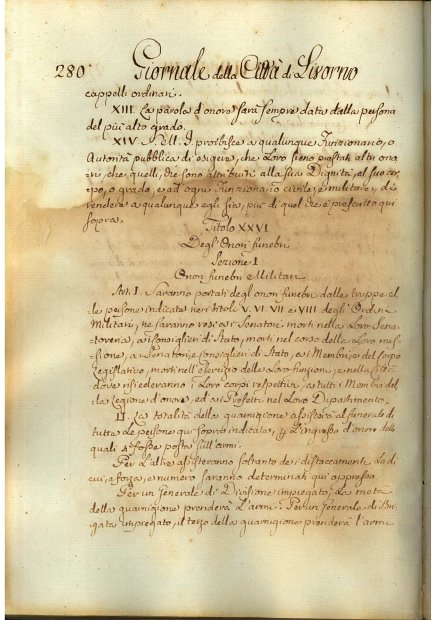 280 Giornale della Città di Livorno
cappelli ordinari.
XIII. La parola d'onore sarà sempre data dalla persona
del più alto grado.
XIV. S. M. I. proibisce a qualunque Funzionario, o
Autorità pubblica di esigere, che Loro sieno prestati altri ono-
ri, che quelli, che sono attribuiti alla sua Dignità, al suo cor-
po, o grado, e ad ogni Funzionario civile, e militare, di
rendere a qualunque egli sia, più di quel che è prescritto qui
sopra.
Titolo XXVI
Degli Onori funebri
Sezione I
Onori funebri Militari
Art. I. Saranno portati degl'onori funebri dalle truppe al-
le persone indicate nei titoli V. VI. VII e VIII degli Ordini
Militari, ne saranno resi ai Senatori morti nella Loro Sena-
toreria, ai Consiglieri di Stato, morti nel corso della Loro mis-
sione, a Senatori, e Consiglieri di Stato, ai Membri del Corpo
Legislativo, morti nell'esercizio delle Loro funzioni, e nella Città
dove risiederanno i Loro corpi respettivi, a tutti i Membri del-
la Legione d'onore, ed ai Prefetti nel Loro Dipartimento.
II. La totalità della guarnigione assisterà al funerale di
tutte Le persone qui sopra indicate, L'ingresso d'onore delle
quali fosse posta sull'armi.
Per L'altre assisteranno soltanto dei distaccamenti La di
cui forza, e numero saranno determinati qui appresso.
Per un Generale di Divisione impiegato, La metà
della guarnigione prenderà L'armi: Per un Generale di Bri-
gata impiegato, il terzo della guarnigione prenderà L'armi